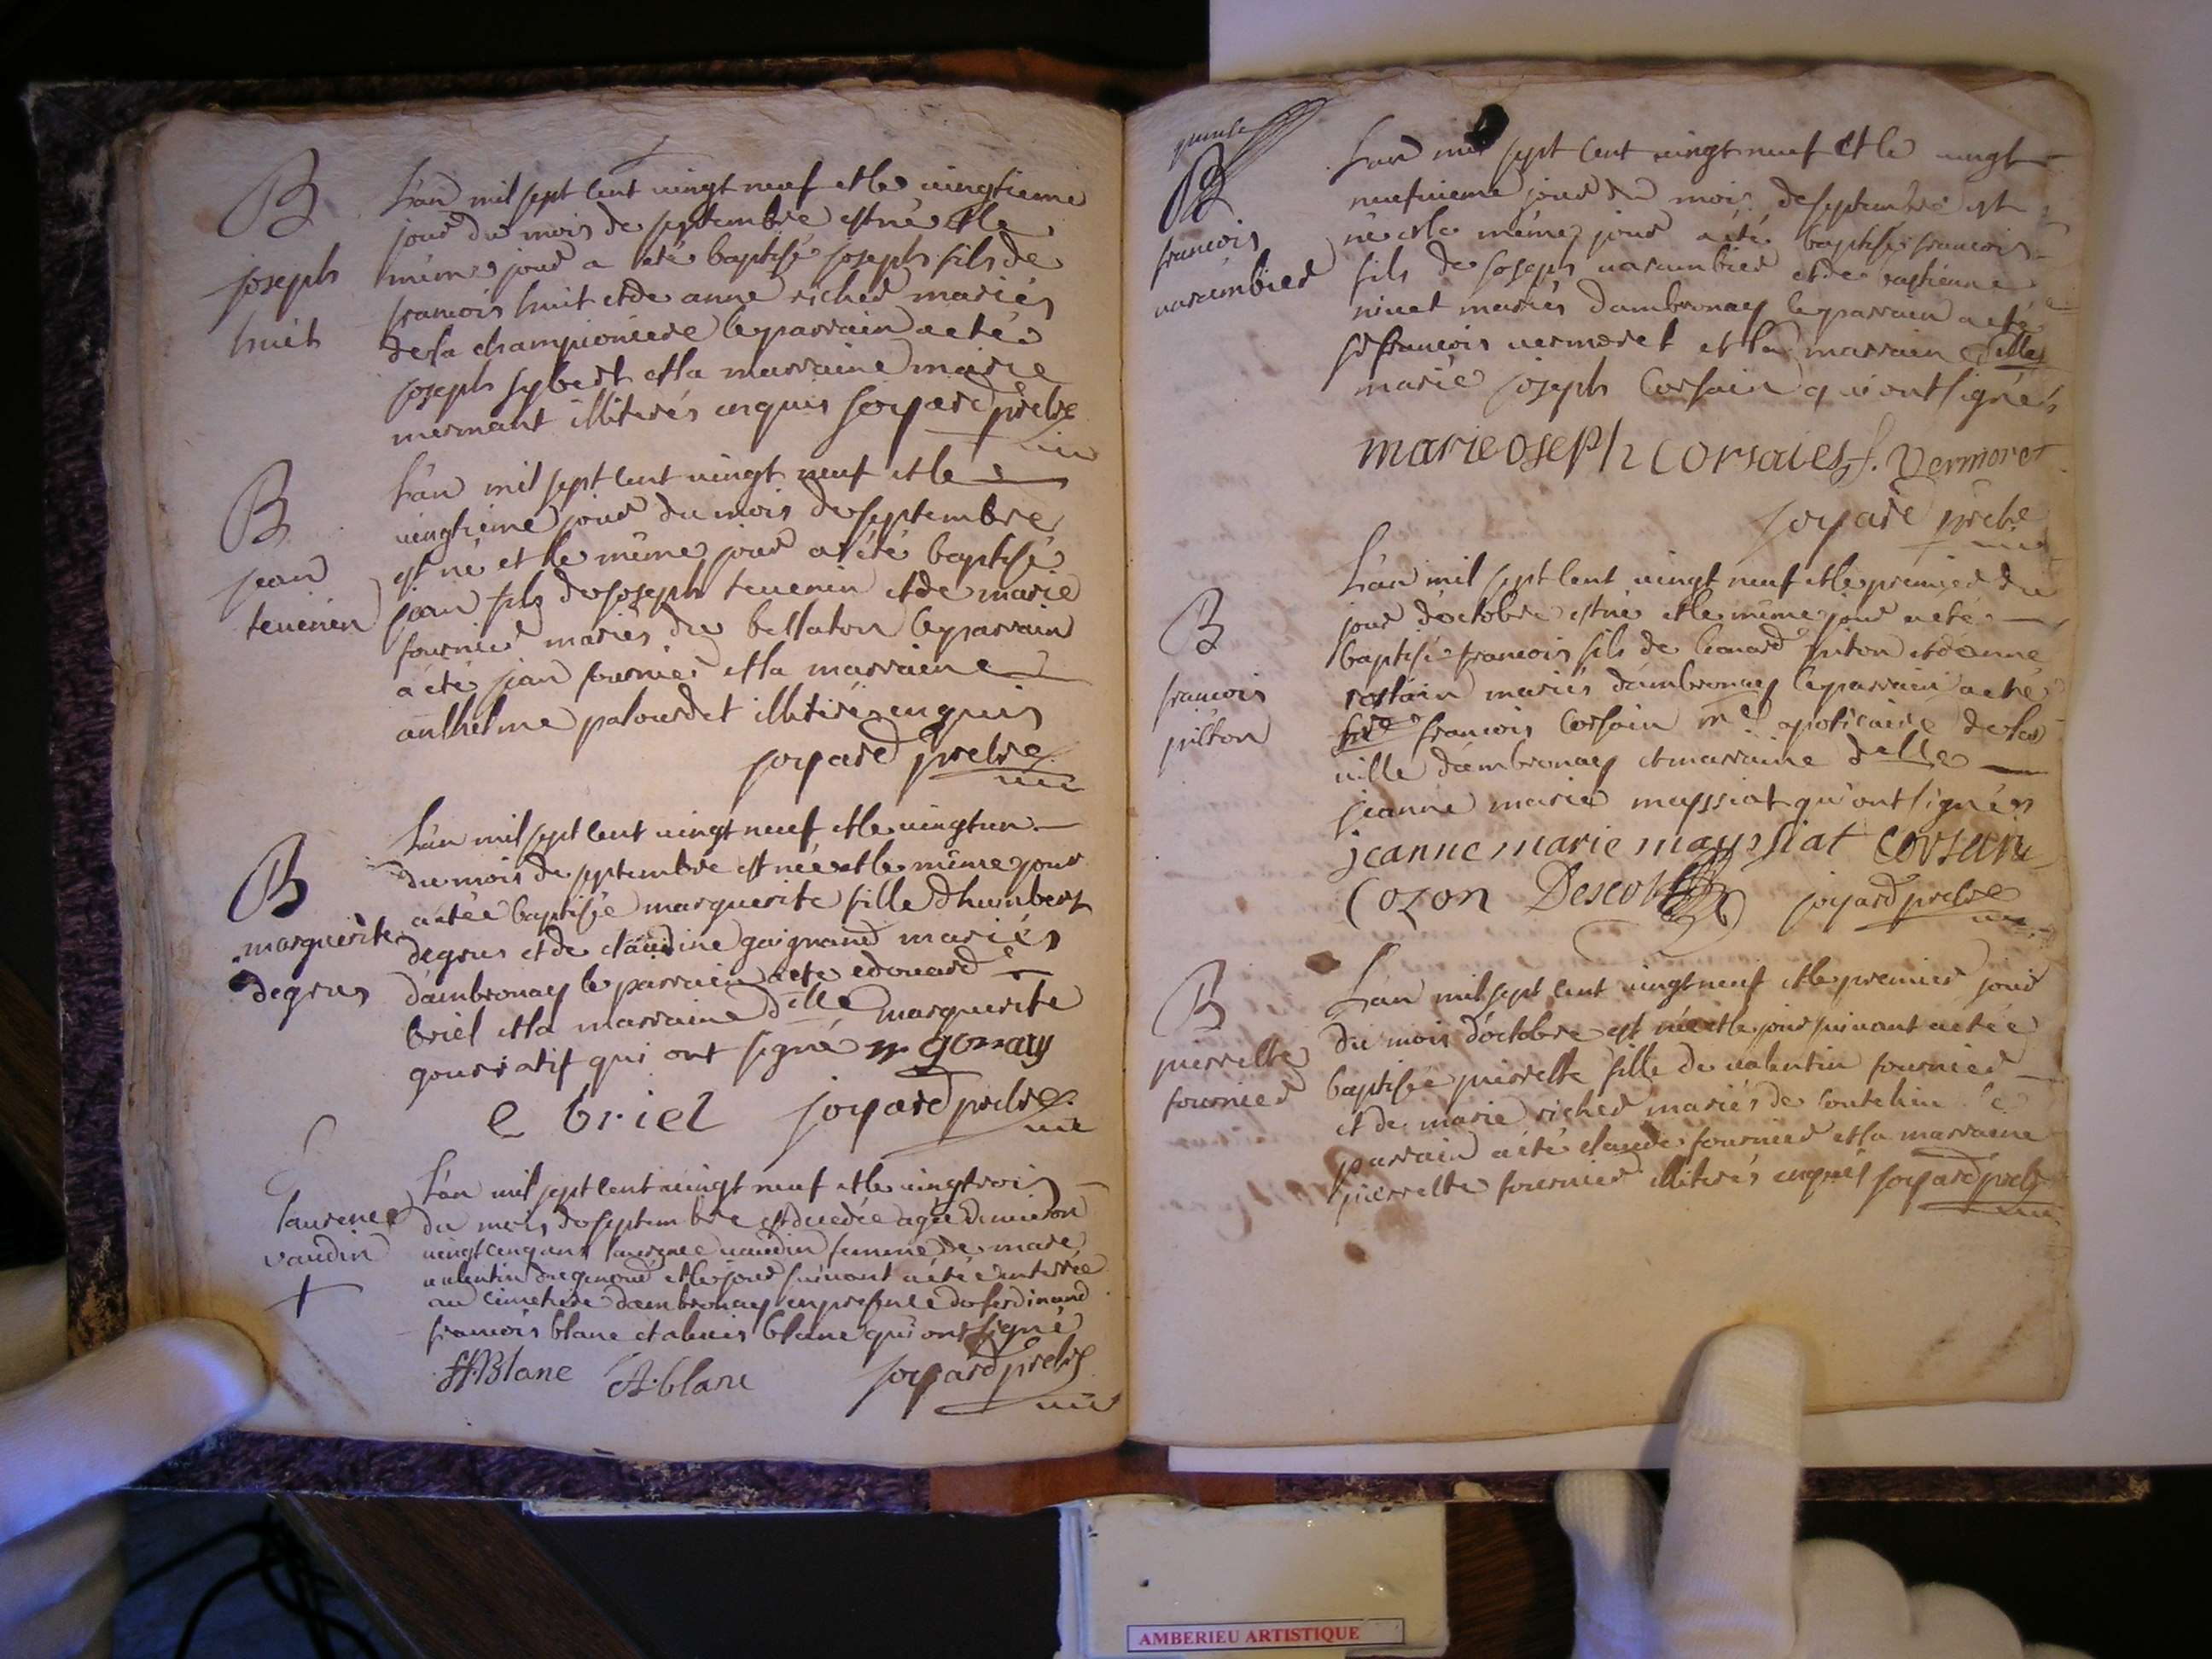 B
joseph
huit
L'an mil sept cent vingt neuf et le vingtieme
jour du mois de septembre est né et le
même jour a été baptisé joseph fils de
francois huit et de anne richer mariés
de la championiere le parrain a été
joseph sybert et la marraine marie
mermant illiterés enquis joyard prebre
B
jean
tevenin
L'an mil sept cent vingt neuf et le
vingtieme jour du mois de septembre
est né et le même jour a été baptisé
jean fils de joseph tevenin et de marie
fournier mariés du bellaton le parrain
a été jean fournier et la marraine
anthelme palourdet illiterés enquis
joyard prebre
B
marguerite
degrus
L'an mil sept cent vingt neuf et le vingt un
du mois de septembre est née et le même jour
a étée baptisée marguerite fille d'humbert
degrus et de claudine gaignand mariés
d'ambronay le parrain a ete edouard
briel et la marraine dlle marguerite
gouratif qui ont signé m
e briel joyard prebre
laurence
vaudin
L'an mil sept cent vingt neuf et le vingt trois
du mois de septembre est decedée agée d'environ
vingt cinq ans laurence vaudin femme de marc
valentin et le jour suivant a étée enterrée
au cimetiere d'ambronay en presence de ferdinand
francois blanc et alexis blanc qui ont signé
ff.Blanc A.blanc joyard prebre
B
francois
varambier
L'an mil sept cent vingt neuf et le vingt
neufvieme jour du mois de septembre est
né et le même jour a été baptisé francois
fils de joseph varambier et de
ninet mariés d'ambronay le parrain a été
sr francois vermoret et la marrain dlle
marie joseph Corsain qui ont signés
marie oseph corsaies f. vermoret
joyard prebre
B
francois
piston
L'an mil sept cent vingt neuf et le premier du
jour d'octobre est né et le même jour a été
baptisé francois fils de leonard piston et d'anne
rostain mariés d'ambronay le parrain a été
sre francois Corsain md apoticaire de la
ville d'ambronay et marraine dlle
jeanne marie mayssiat qu'ont signés
jeanne marie mayssiat corsain
Cozon joyard prebre
B
pierrette
fournier
L'an mil sept cent vingt neuf et le premier jour
du mois d'octobre est née et le jour suivant a étée
baptisée pierrette fille de valentin fournier
et de marie richer mariés de coutelieu le
parrain a été claude fournier et la marraine
pierrette fournier illiterés enquis joyard prebre
AMBERIEU ARTISTIQUE